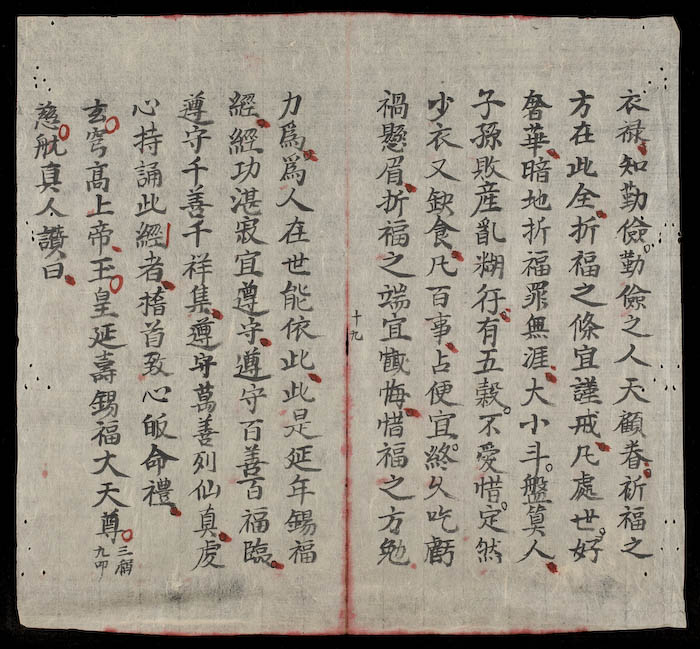 衣禄知勤儉勤儉之人天顧眷祈福之
方在此全折福之條宜謹戒凡處世好
奢華暗地折福罪無涯大小斗盤筭人
子孫敗産亂糊行有五穀不愛惜定然
少衣又缺食凡百事占便宜終久吃虧
禍懸眉折福之端宜懺悔惜福之方勉
十九
力爲爲人在世能依此此是延年錫福
經經功湛寂宜遵守遵守百善百福臨
遵守千善千祥集遵守萬善列仙真虔
心持誦此經者稽首致心皈命禮
玄穹高上帝玉皇延壽錫福大天尊三稱九叩
慈航真人讚曰